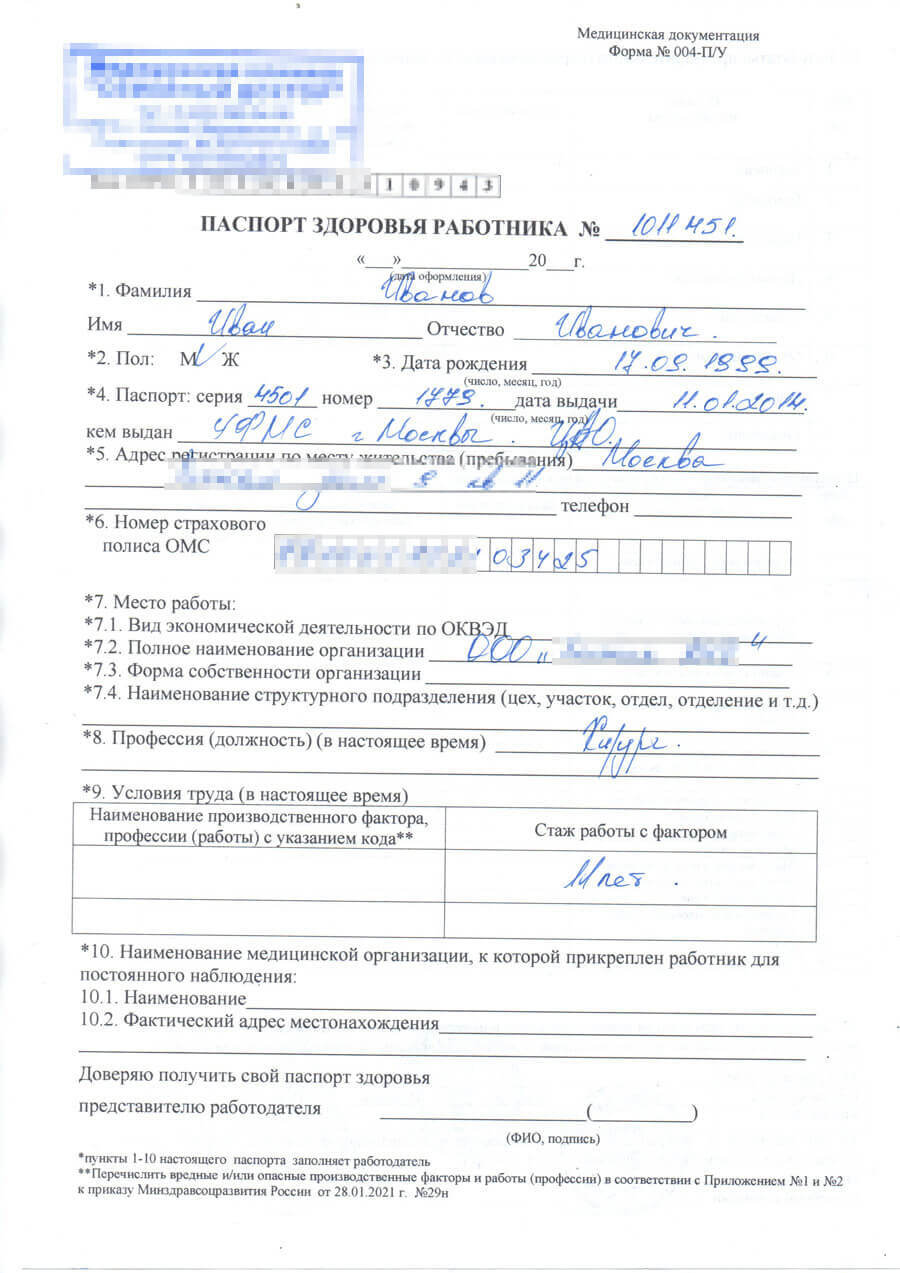 Медицинская документация
Форма № 004-П/У
1 0 9 4 3
ПАСПОРТ ЗДОРОВЬЯ РАБОТНИКА № 1011451.
«___»______________20___г.
(дата оформления)
*1. Фамилия Иванов
Имя Иван Отчество Иванович.
*2. Пол: М V Ж *3. Дата рождения 17.09.1999.
(число, месяц, год)
*4. Паспорт: серия 4501 номер 1779. дата выдачи 11.01.2014.
(число, месяц, год)
кем выдан УФМС г Москвы. ЦАО.
*5. Адрес регистрации по месту жительства (пребывания) Москва
9 кв 11
телефон
*6. Номер страхового
полиса ОМС 03425
*7. Место работы:
*7.1. Вид экономической деятельности по ОКВЭД
*7.2. Полное наименование организации ООО "
*7.3. Форма собственности организации
*7.4. Наименование структурного подразделения (цех, участок, отдел, отделение и т.д.)
*8. Профессия (должность) (в настоящее время) Хирург.
*9. Условия труда (в настоящее время)
Наименование производственного фактора,
профессии (работы) с указанием кода**
Стаж работы с фактором
11 лет.
*10. Наименование медицинской организации, к которой прикреплен работник для
постоянного наблюдения:
10.1. Наименование
10.2. Фактический адрес местонахождения
Доверяю получить свой паспорт здоровья
представителю работодателя ____________________(__________)
(ФИО, подпись)
*пункты 1-10 настоящего паспорта заполняет работодатель
**Перечислить вредные и/или опасные производственные факторы и работы (профессии) в соответствии с Приложением №1 и №2
к приказу Минздравсоцразвития России от 28.01.2021 г. №29н